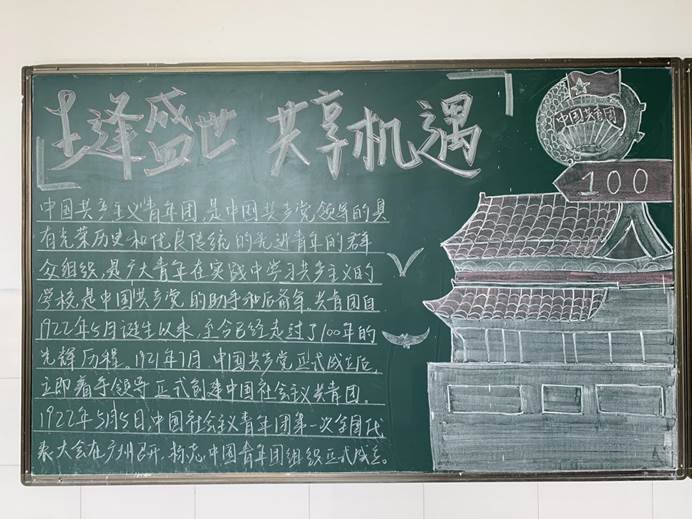 生逢盛世 共享机遇
中国共青团
100
中国共产主义青年团,是中国共产党领导的具
有光荣历史和优良传统的先进青年的群
众组织,是广大青年在实践中学习共产主义的
学校,是中国共产党的助手和后备军。共青团自
1922年5月诞生以来,至今已经走过了100年的
光辉历程。1921年7月中国共产党正式成立后,
立即着手领导正式创建中国社会主义共青团。
1922年5月5日,中国社会主义青年团第一次全国代
表大会在广州召开,标志中国青年团组织正式成立。